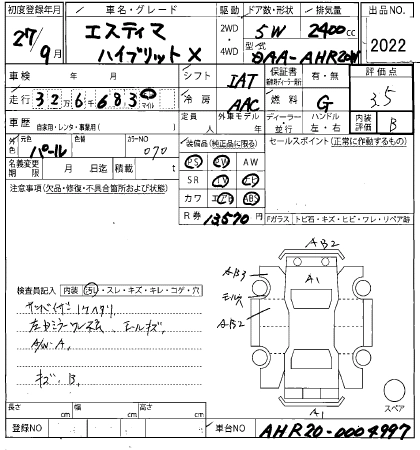 初度登録年月 車名・グレード 駆動 ドア数・形状 排気量 出品NO.
27/9月 エスティマ ハイブリットX 2WD・4WD 5W 2400cc 2022
型式 DAA-AHR20W
車検 年 月 シフト IAT 保証書 有・無 評価点
走行 32万6千683 マイル 冷房 AAC 燃料 G 3.5
車歴 自家用・レンタ・事業用( ) 定員 人 外車モデル ディーラー・並行 ハンドル 左・右 内装評価 B
外色 元色 パール 色替 カラーNO 070 装備品(純正品に限る) セールスポイント(正常に作動するもの)
PS PW AW
名義変更期限 月 日迄 積載 t SR TV ナビ
注意事項(欠品・修復・不具合箇所および状態) カワ エアB ABS
R券 13,570円 Fガラス トビ石・キズ・ヒビ・ワレ・リペア跡
AB2
AB3 A1
検査員記入 内装 汚れ・スレ・キズ・キレ・コゲ・穴
モール
AB2
左ドミラー
A/W-A.
キズ.B.
スペア
長さ cm 幅 cm 高さ cm A1
登録NO 車台NO AHR20-0004997